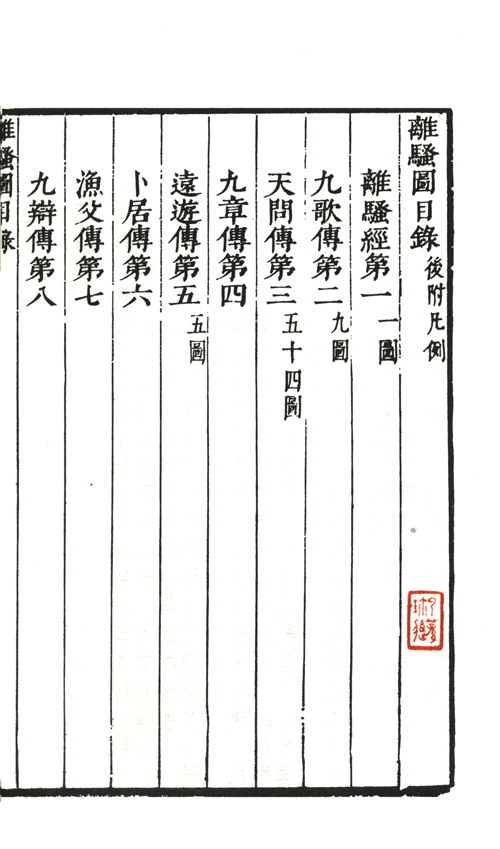 離騷圖目錄 後附凡例
離騷經第一 一圖
九歌傳第二 九圖
天問傳第三 五十四圖
九章傳第四
遠遊傳第五 五圖
卜居傳第六
漁父傳第七
九辯傳第八
離騷圖目錄